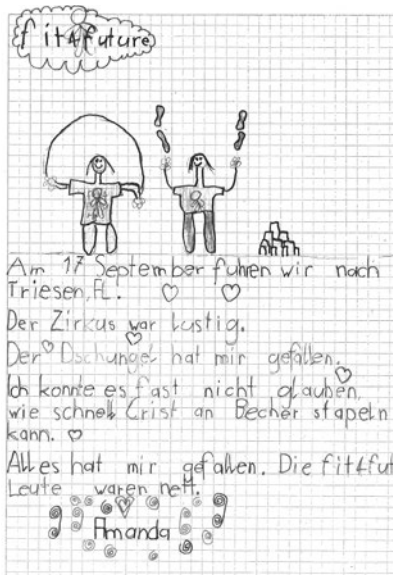 fit4future
Am 17 September fuhren wir nach
Triesen, FL.
Der Zirkus war lustig.
Der Dschungel hat mir gefallen.
Ich konte es fast nicht glauben,
wie schnell Crist an Becher stapeln
kann.
Alles hat mir gefallen. Die fit4fut
Leute waren nett.
Amanda